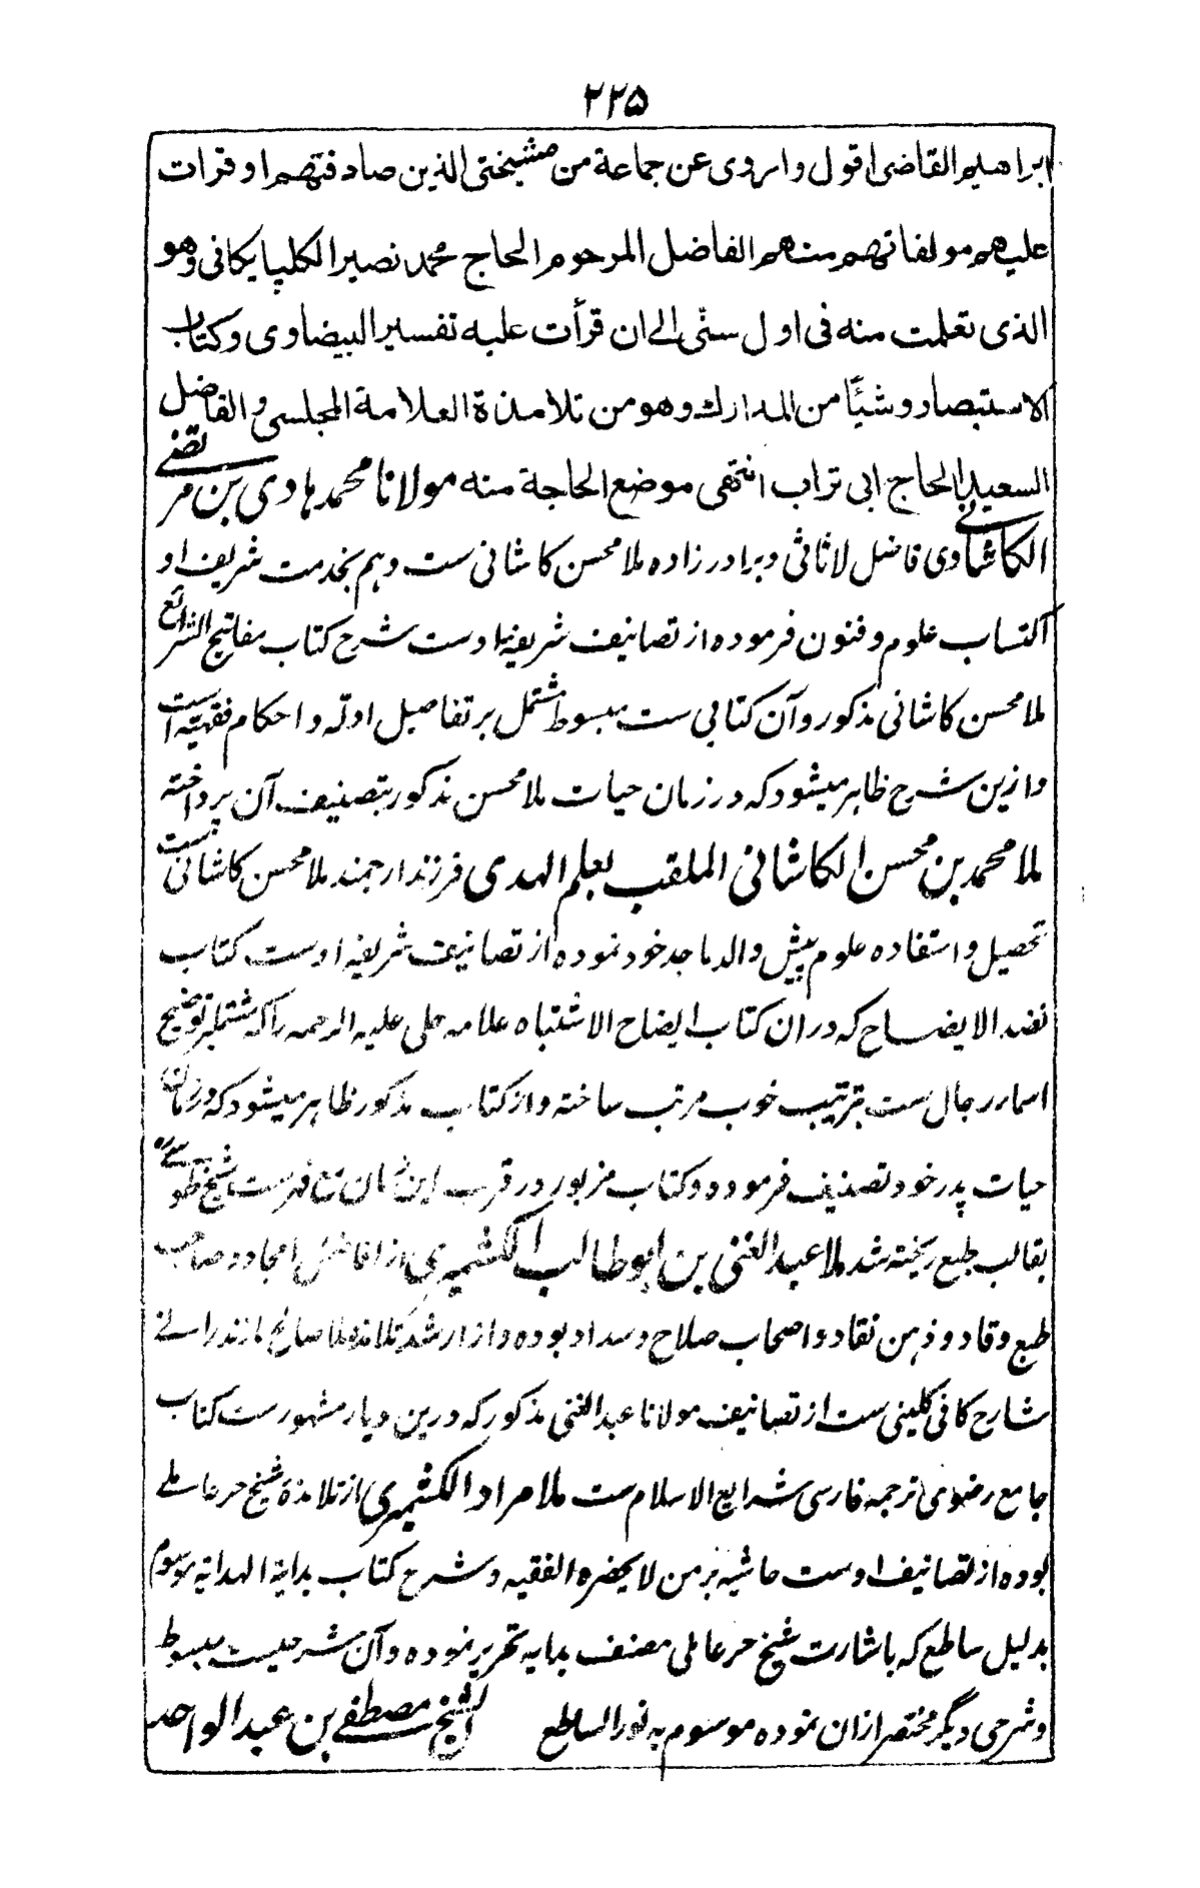 ۲۲۵
ابراهيم القاضى اقول واروى عن جماعة من مشيختى الذين صادفتهم او قرات
عليهم مولفاتهم منهم الفاضل المرحوم الحاج محمد نصير الكلپايكانى وهو
الذى تعلمت منه فى اول سنّى الى ان قرأت عليه تفسير البيضاوى وكتاب
الاستبصار وشيئًا من المدارك وهو من تلامذة العلامة المجلسى والفاضل
السعيد الحاج ابى تراب انتهى موضع الحاجة منه مولانا محمد ہادی بن مرتضے
الکاشانے وی فاضل لاثانی و برادر زاده ملا محسن کاشانی ست و ہم بخدمت شریف او
اکتساب علوم و فنون فرموده از تصانیف شریفۂ اوست شرح کتاب مفاتیح الشرائع
ملا محسن کاشانی مذکور و آن کتابی ست مبسوط مشتمل بر تفاصیل ادلّہ و احکام فقہیّہ است
و ازین شرح ظاہر میشود کہ در زمان حیات ملا محسن مذکور بتصنیف آن پرداختہ
ملا محمد بن محسن الکاشانی الملقب بعلم الہدی فرزند ارجمند ملا محسن کاشانی ست
تحصیل و استفاده علوم پیش والد ماجد خود نموده از تصانیف شریفہ اوست کتاب
نضد الایضاح کہ در ان کتاب ایضاح الاشتباه علامہ حلی علیہ الرحمہ را کہ مشتملبر توضیح
اسماء رجال ست بترتیب خوب مرتب ساختہ و از کتاب مذکور ظاہر میشود کہ در زمان
حیات پدر خود تصنیف فرموده و کتاب مزبور در قرب این زمان مع فہرست شیخ طوسے
بقالب طبع ریختہ شد ملا عبد الغنی بن ابو طالب الکشمیری از افاضل امجاد و صاحب
طبع وقاد و ذہن نقاد و اصحاب صلاح و سداد بوده و از ارشد تلامذه ملا صالح مازندرانے
شارح کافی کلینی ست از تصانیف مولانا عبد الغنی مذکور کہ درین دیار مشہورست کتاب
جامع رضوی ترجمہ فارسی شرایع الاسلام ست ملا مراد الکشمیری از تلامذۂ شیخ حر عاملے
بوده از تصانیف اوست حاشیہ بر من لا یحضره الفقیہ و شرح کتاب بدایۃ الہدایہ موسوم
بدلیل ساطع کہ باشارت شیخ حر عاملی مصنف بدایہ تحریر نموده و آن شرحیست مبسوط
و شرحی دیگر مختصر از ان نموده موسوم بہ نور الساطع الشیخ مصطفے بن عبد الواحد